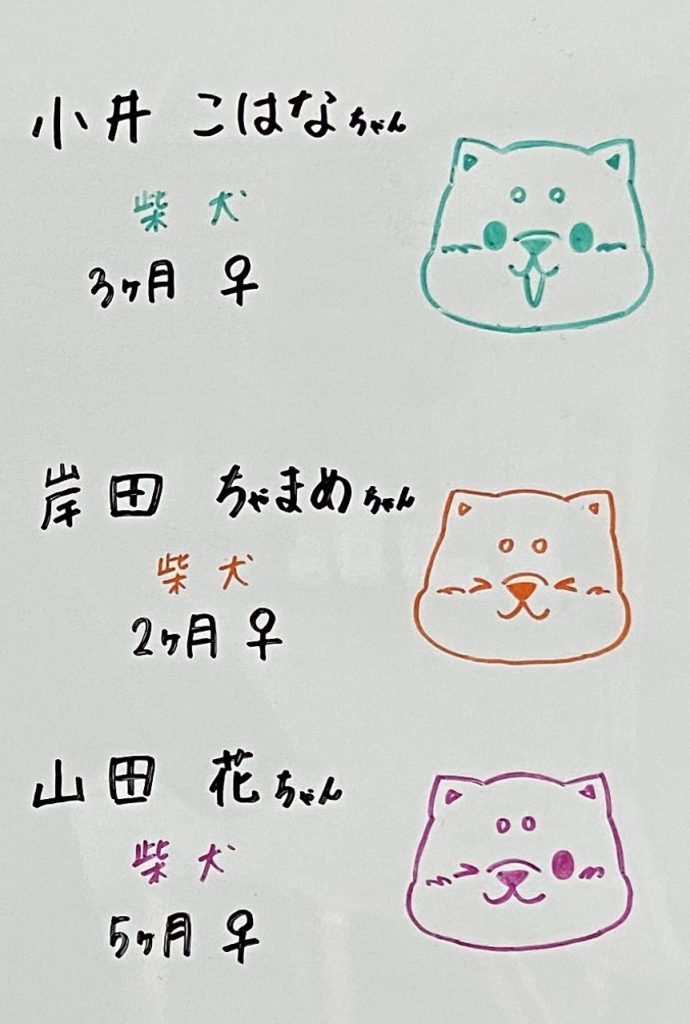 小井 こはなちゃん
柴犬
3ヶ月 ♀
岸田 ちゃまめちゃん
柴犬
2ヶ月 ♀
山田 花ちゃん
柴犬
5ヶ月 ♀